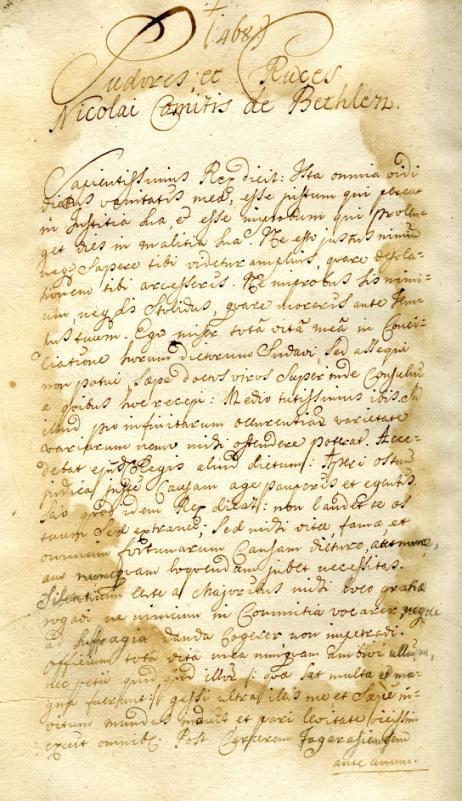 (468)
Sudores et Cruces
Nicolai Comitis de Bethlen.
Sapientissimus Rex dicit: Ista omnia vidi
diebus vanitatis meæ, esse justum qui pereat
in Justitia sua, et esse impium qui prolon-
get dies in malitia sua. Ne esto justus nimium
neq Sapere tibi videtur amplius, quare desola-
tionem tibi arcesseris. Ne improbus sis nimi-
um, neq sis Stolidus, quare moreris ante tem-
pus tuum. Ego miser totâ vitâ meâ in Conci-
liatione horum dictorum Sudavi, sed assequi
non potui, sæpe doctos viros super inde Consului
a quibus hoc recepi: Medio tutissimus ibis, sed
illud pro infinitarum occurrentiarum varietate
variarum nemo mihi ostendere poterat. Acce-
debat ejusd Regis aliud dictum: Aperi os tuum
judica juste Causam age pauperis et egentis.
quod idem Rex dicat: non laudet te os
tuum sed extraneus, sed mihi vitæ famæ et
omnium fortunarum Causam dicturo, aut nunc,
aut nunquam loquendum jubet necessitas.
Silentium
rogavi ne nimium in Comitia vocarer, neque
ad suffragia danda Cogerer non impetravi.
Officium totâ vitâ meâ nunquam ambivi ullum,
nec petii quidquid illud: quæ sat multa et ma-
gna fuerunt: gessi ultra illis me et Sæpe in-
vitum mundus induit et pari levitate vicissim
exuit omnibus. Post Carcerem Fogarasiensem
ante annum.